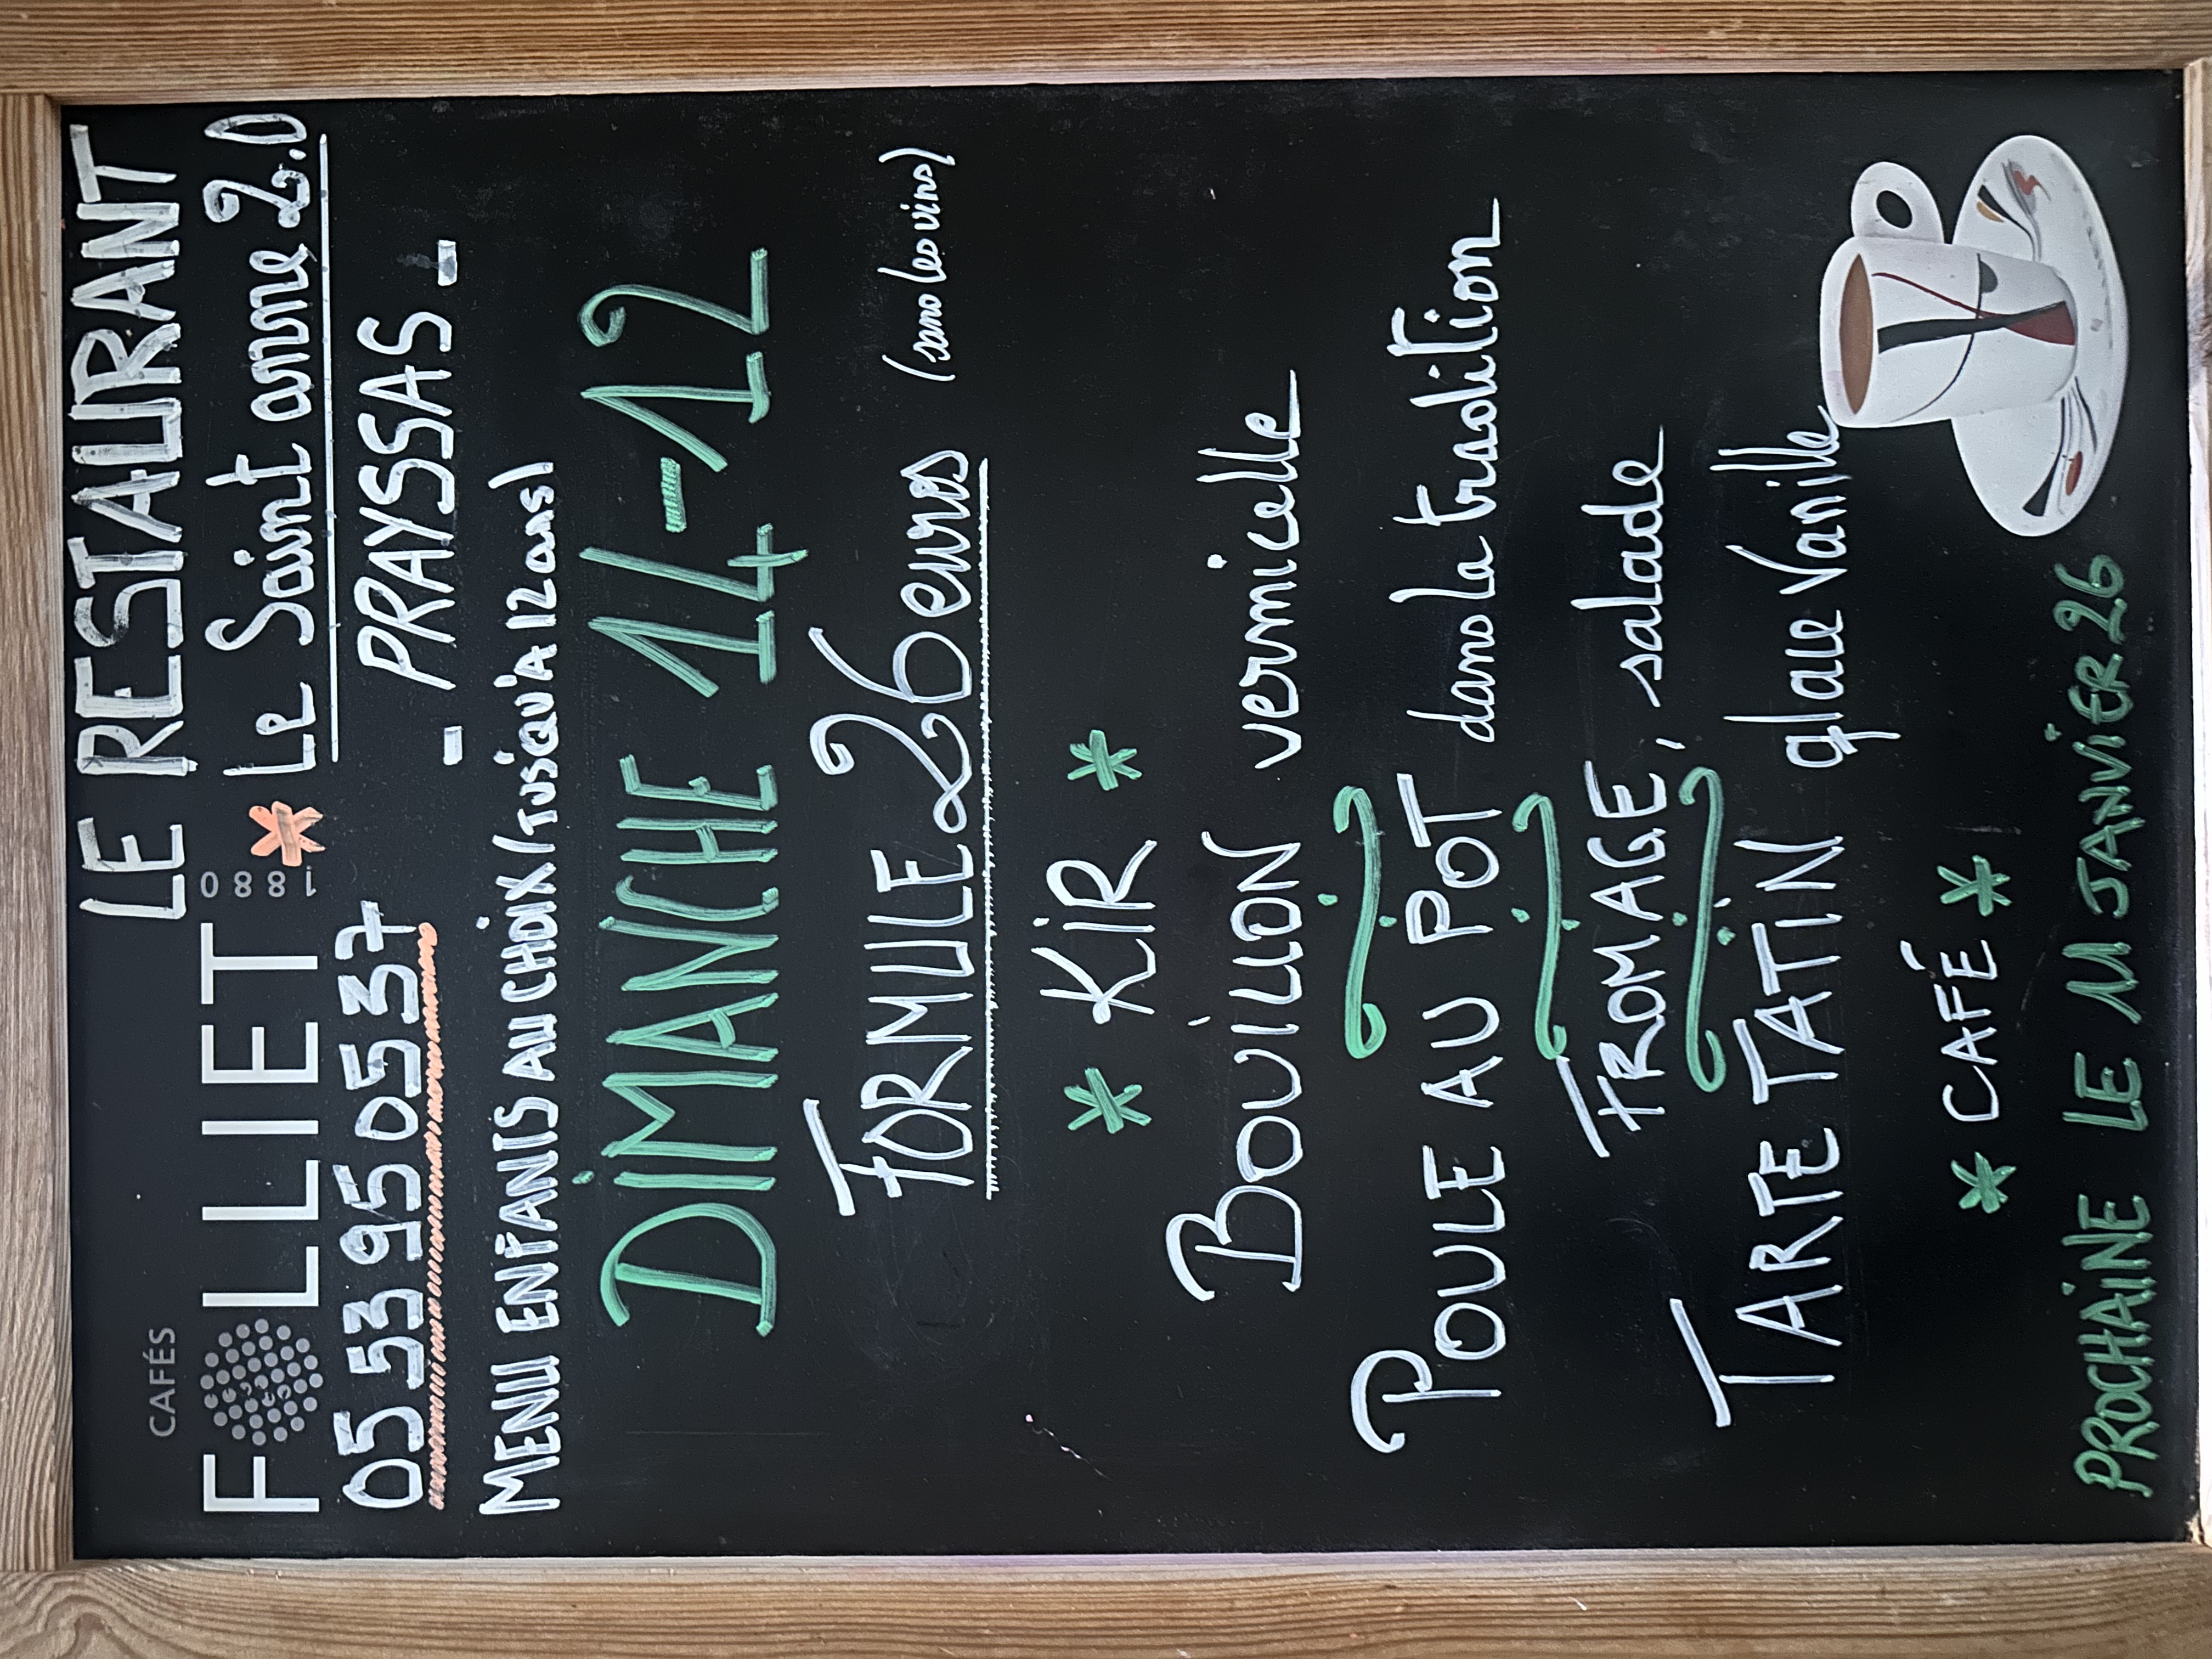 LE RESTAURANT
CAFÉS
FOLLIET 1880 * Le Saint anne 2.0
05 53 95 05 37 - PRAYSSAS -
MENU ENFANTS AU CHOIX (JUSQU'A 12 ans)
DIMANCHE 14-12
FORMULE 26 euros (sans les vins)
* KIR *
BOUILLON vermicelle
POULE AU POT dans la tradition
FROMAGE, salade
TARTE TATIN glace Vanille
* CAFÉ *
PROCHAINE LE 11 JANVIER 26